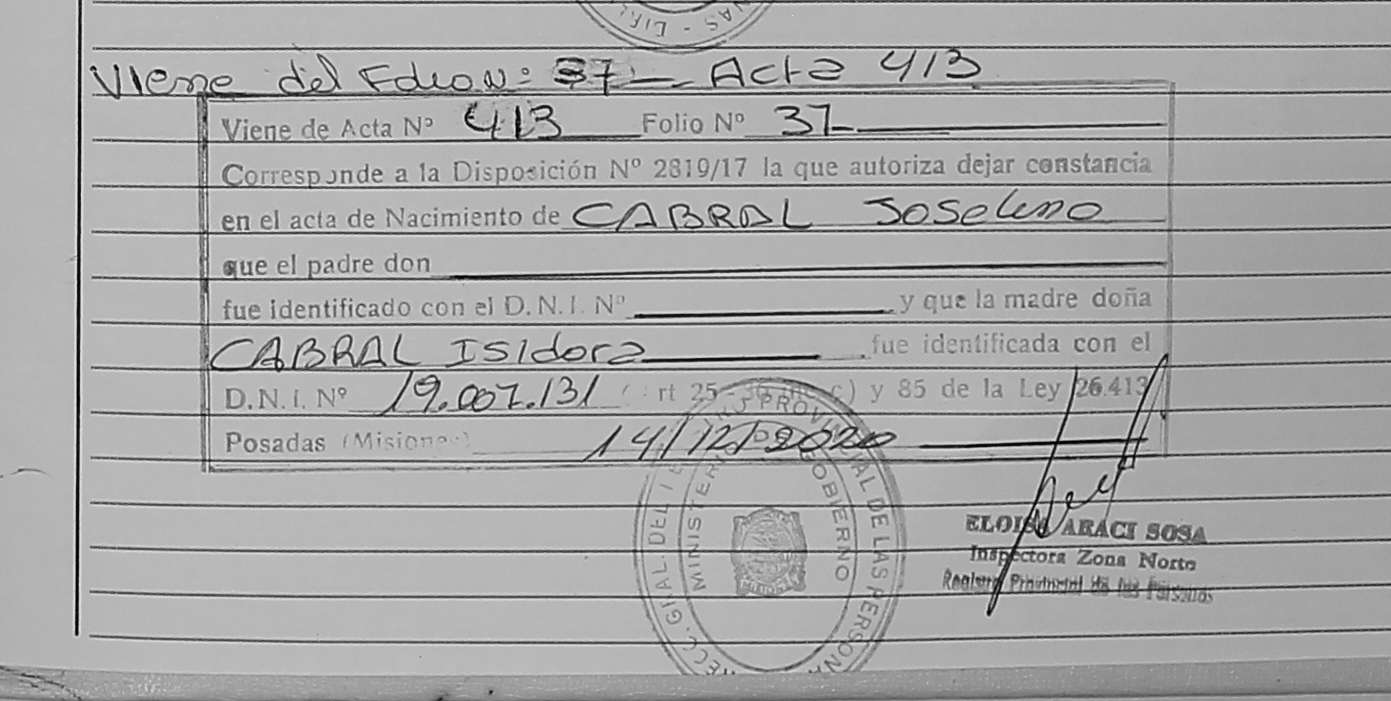 Viene del Folio Nº 37 — Acta 413
Viene de Acta Nº 413 Folio Nº 37
Corresponde a la Disposición Nº 2819/17 la que autoriza dejar constancia
en el acta de Nacimiento de CABRAL Joselino
que el padre don
fue identificado con el D.N.I. Nº y que la madre doña
CABRAL Isidora fue identificada con el
D.N.I. Nº 19.007.131 rt 25 - c) y 85 de la Ley 26.413
Posadas (Misiones) 14/12/2020
PROVINCIAL DE LAS PERSONA
MINISTERIO GOBIERNO
ELOISA ARACI SOSA
Inspectora Zona Norte
Registro Provincial de las Personas